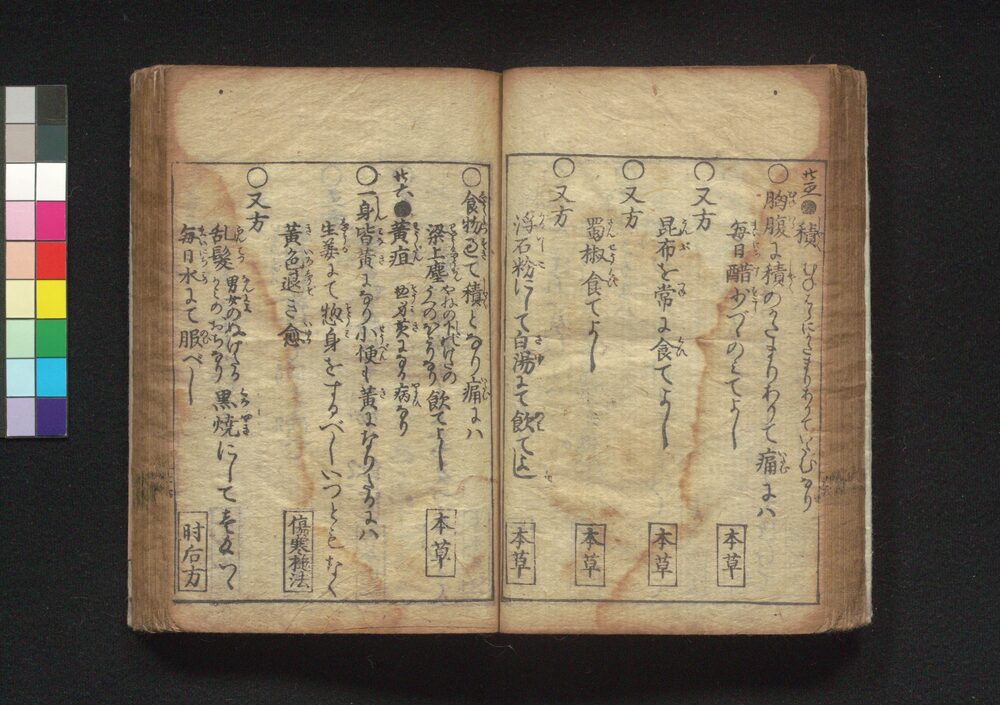 廿五●積 むねはらにかたまりありていたむなり
○胸腹に積のかたまりありて痛には
毎日酢少づゝのみてよし
本草
○又方
昆布を常に食てよし
本草
○又方
蜀椒食てよし
本草
○又方
浮石粉にして白湯にて飲てよし
本草
○食物にて積となり痛には
梁上塵 飲てよし
本草
廿六●黄疸 惣身黄になる病なり
○一身皆黄になり小便も黄になりたるには
生姜にて惣身をするべしいつともなく
黄色退き愈
傷寒槌法
○又方
乱髪 男女のぬけたるかみのおちなり 黒焼にして壱匁づゝ
毎日水にて服べし
肘后方